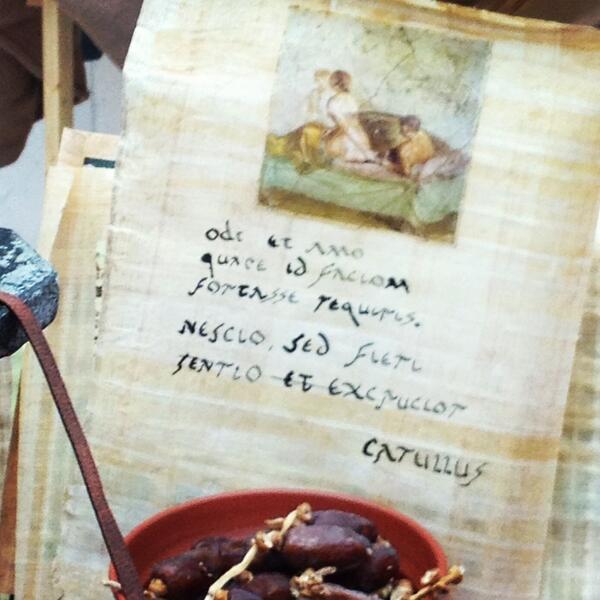 odi et amo
quare id faciam
fortasse requiris.
nescio, sed fieri
sentio et excrucior
CATULLUS